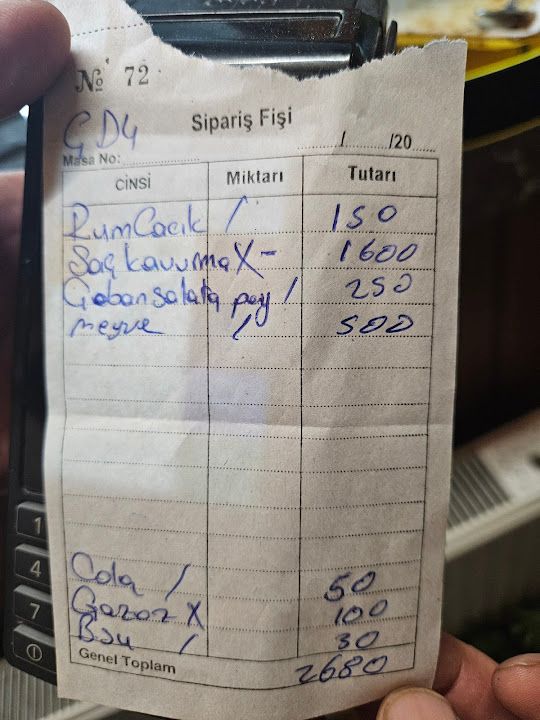 No 72
Sipariş Fişi
GD4
/ /20
Masa No:
CİNSİ Miktarı Tutarı
RumCacık / 150
Saç kavurma X - 1600
Çobansalata pey / 250
meyve / 500
Cola / 50
Gazoz X 100
BSu / 30
Genel Toplam 2680
1
4
7